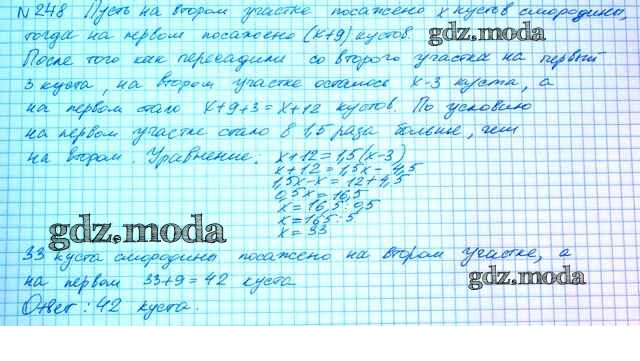 №248 Пусть на втором участке посажено x кустов смородины,
тогда на первом посажено (x+9) кустов.
gdz.moda
После того как пересадили со второго участка на первый
3 куста, на втором участке осталось x-3 куста, а
на первом стало x+9+3=x+12 кустов. По условию
на первом участке стало в 1,5 раза больше, чем
на втором. Уравнение.
x+12=1,5(x-3)
x+12=1,5x-4,5
1,5x-x=12+4,5
0,5x=16,5
x=16,5:0,5
x=165:5
x=33
gdz.moda
33 куста смородины посажено на втором участке, а
на первом 33+9=42 куста
gdz.moda
Ответ: 42 куста.